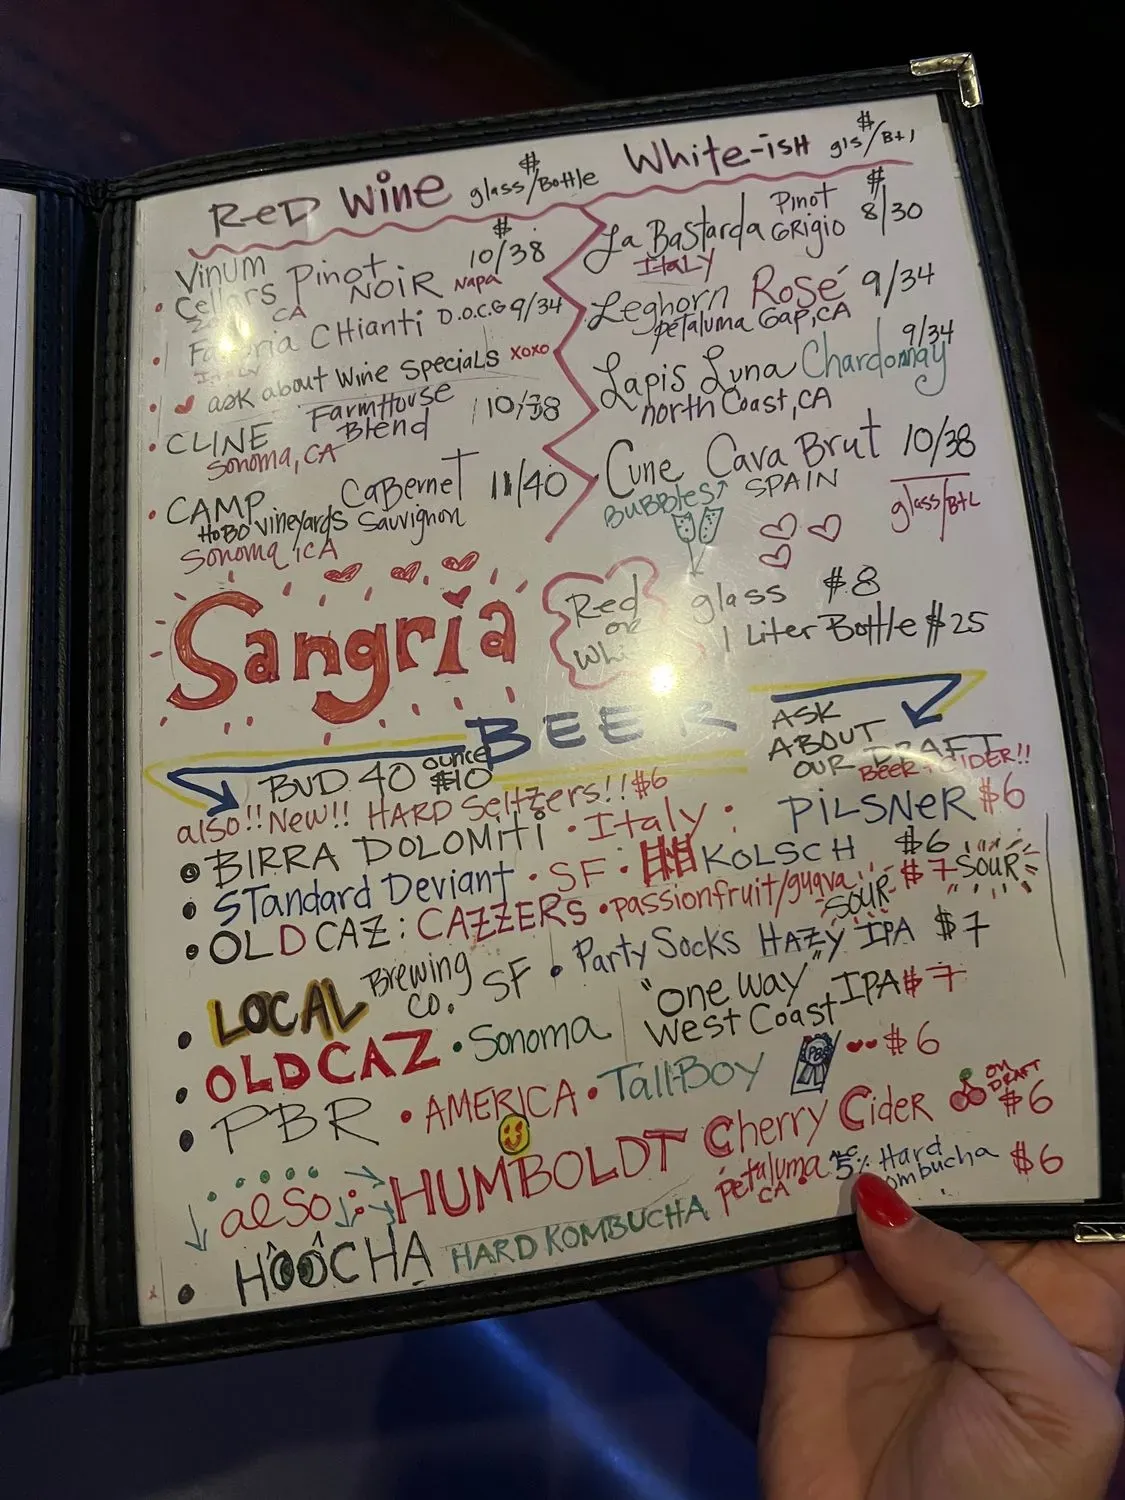 Red Wine $ glass/Bottle
Vinum Cellars Pinot Noir $ 10/38
CA Napa
Chianti D.O.C.G 9/34
ITALY
ask about Wine Specials xoxo
CLINE Farmhouse Blend 10/38
Sonoma, CA
CAMP Cabernet 11/40
Hobo vineyards Sauvignon
Sonoma, CA
White-ish $ gls/Btl
La Bastarda Pinot Grigio $ 8/30
Italy
Leghorn Rosé 9/34
Petaluma Gap, CA
Lapis Luna Chardonnay 9/34
north Coast, CA
Cune Cava Brut 10/38
Bubbles↑ SPAIN glass/Btl
Sangria
Red or White
glass $8
1 Liter Bottle $25
BEER
ASK ABOUT OUR DRAFT
BEER + CIDER!!
BUD 40 ounce $10
also!! New!! HARD Seltzers!! $6
• BIRRA DOLOMITI • Italy: PILSNER $6
• STandard Deviant • SF • KOLSCH $6
• OLD CAZ: CAZZERS • passionfruit/guava SOUR $7 SOUR
• LOCAL Brewing Co. SF • Party Socks HAZY IPA $7
• OLD CAZ • Sonoma "one way" West Coast IPA $7
• PBR • AMERICA • TallBoy PBR $6
also: HUMBOLDT Cherry Cider ON DRAFT $6
• HOOCHA HARD KOMBUCHA petaluma CA • 5% Hard Kombucha $6